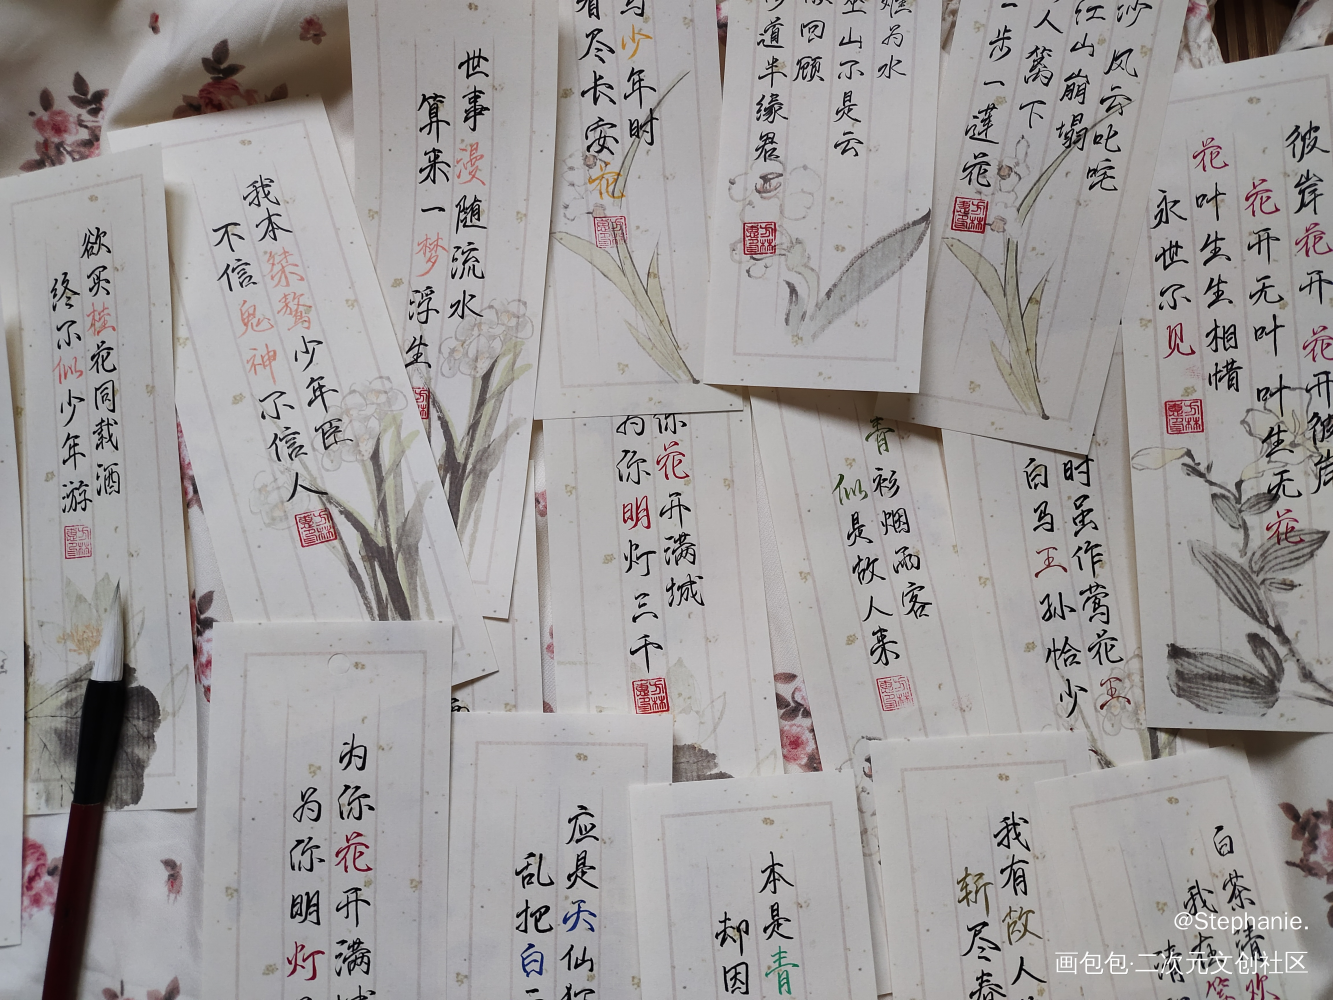 欲买桂花同载酒
终不似少年游
我本桀骜少年臣
不信鬼神不信人
世事漫随流水
算来一梦浮生
少年时
看尽长安花
难为水
巫山不是云
回顾
道半缘君
沙
风云叱咤
江山崩塌
人篱下
一步一莲花
彼岸花开花开彼岸
花开无叶叶生无花
花叶生生相惜
永世不见
你花开满城
为你明灯三千
青衫烟雨客
似是故人来
时虽作莺花王
白马王孙恰少
为你花开满城
为你明灯
应是天仙狂
乱把白
本是青
却因
我有故人
斩尽春
白茶清欢
我在
清
@Stephanie.
画包包·二次元文创社区